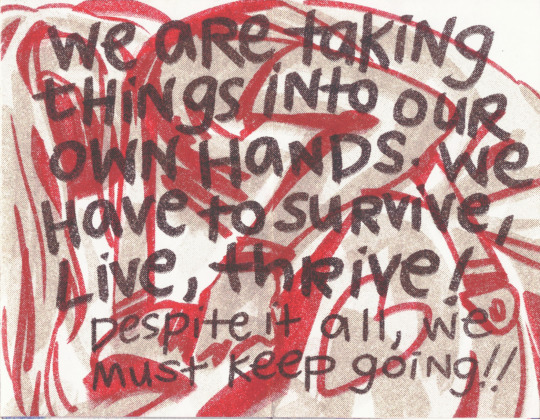 we are taking
things into our
own hands. we
have to survive,
Live, thrive!
Despite it all, we
must keep going!!